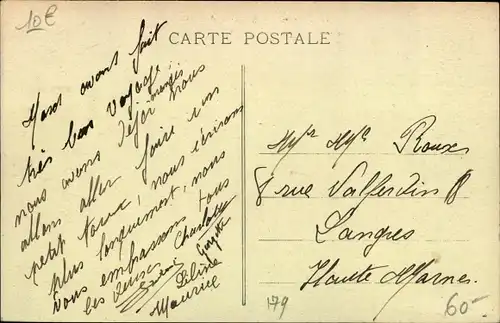 10€
CARTE POSTALE
Nous avons fait
très bon voyage
nous avons déjà mangé
allons aller faire un
petit tour, nous écrirons
plus longuement, nous
vous embrassons tous
les deux
Charlotte
Maurice
Mr Mme Roux
8 rue Valferdin 8
Langres
Haute Marne
179
60-